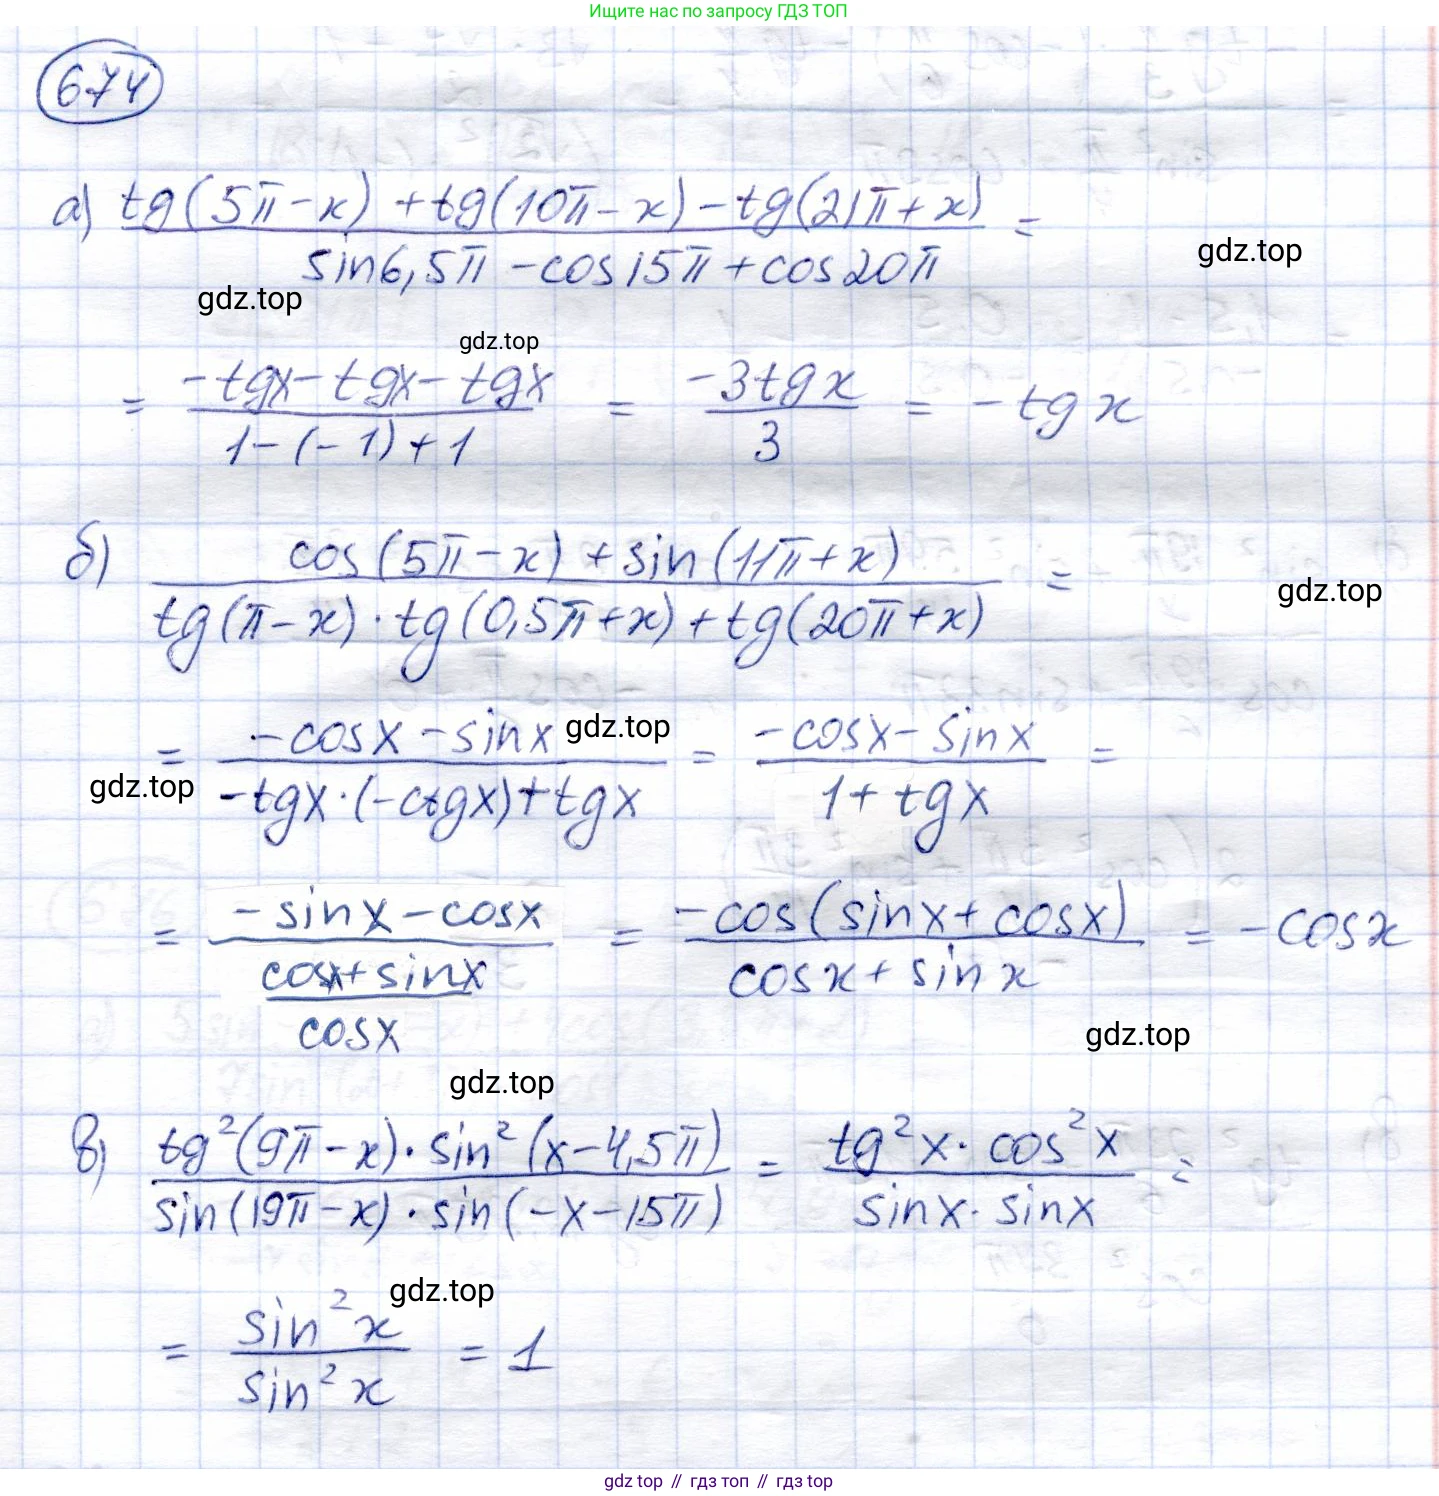 Ищите нас по запросу ГДЗ ТОП
674
а) (tg(5π-x)+tg(10π-x)-tg(21π+x))/(sin6,5π-cos15π+cos20π) =
gdz.top
gdz.top
gdz.top
= (-tgx-tgx-tgx)/(1-(-1)+1) = (-3tgx)/3 = -tgx
б) (cos(5π-x)+sin(11π+x))/(tg(π-x)·tg(0,5π+x)+tg(20π+x)) =
gdz.top
= (-cosx-sinx)/(-tgx·(-ctgx)+tgx) = (-cosx-sinx)/(1+tgx) =
gdz.top
gdz.top
= (-sinx-cosx)/((cosx+sinx)/cosx) = (-cos(sinx+cosx))/(cosx+sinx) = -cosx
gdz.top
gdz.top
в) (tg²(9π-x)·sin²(x-4,5π))/(sin(19π-x)·sin(-x-15π)) = (tg²x·cos²x)/(sinx·sinx) =
gdz.top
= sin²x/sin²x = 1
gdz top // гдз топ // gdz top